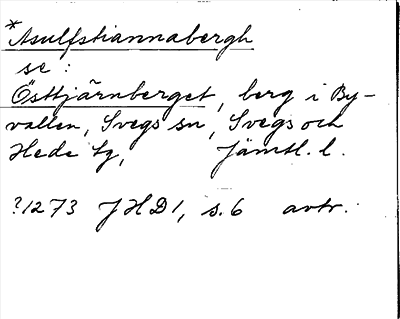 *Asulfstiannabergh
se:
Östtjärnberget, berg i By-
vallen, Svegs sn, Svegs och
Hede tg, Jämtl. l.
?1273 JHD 1, s. 6 avtr.